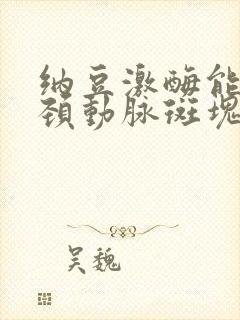 纳豆激酶能
颈動脉斑塊
吴魏